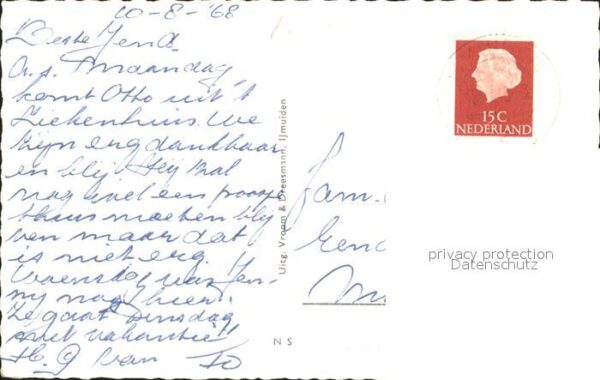 10-8-'68
Beste Jend
A.s. Maandag
komt Otto uit 't
Ziekenhuis. We
zijn erg dankbaar
en blij. Hij zal
nog wel een poosje
thuis moeten blij
ven maar dat
is niet erg.
Woensdag was Jen-
ny nog hier.
Ze gaat Dinsdag
met vakantie!!
H. G van To
Uitg. Vroom & Dreesmann, IJmuiden
N S
15 C
NEDERLAND
Fam.
privacy protection
Datenschutz